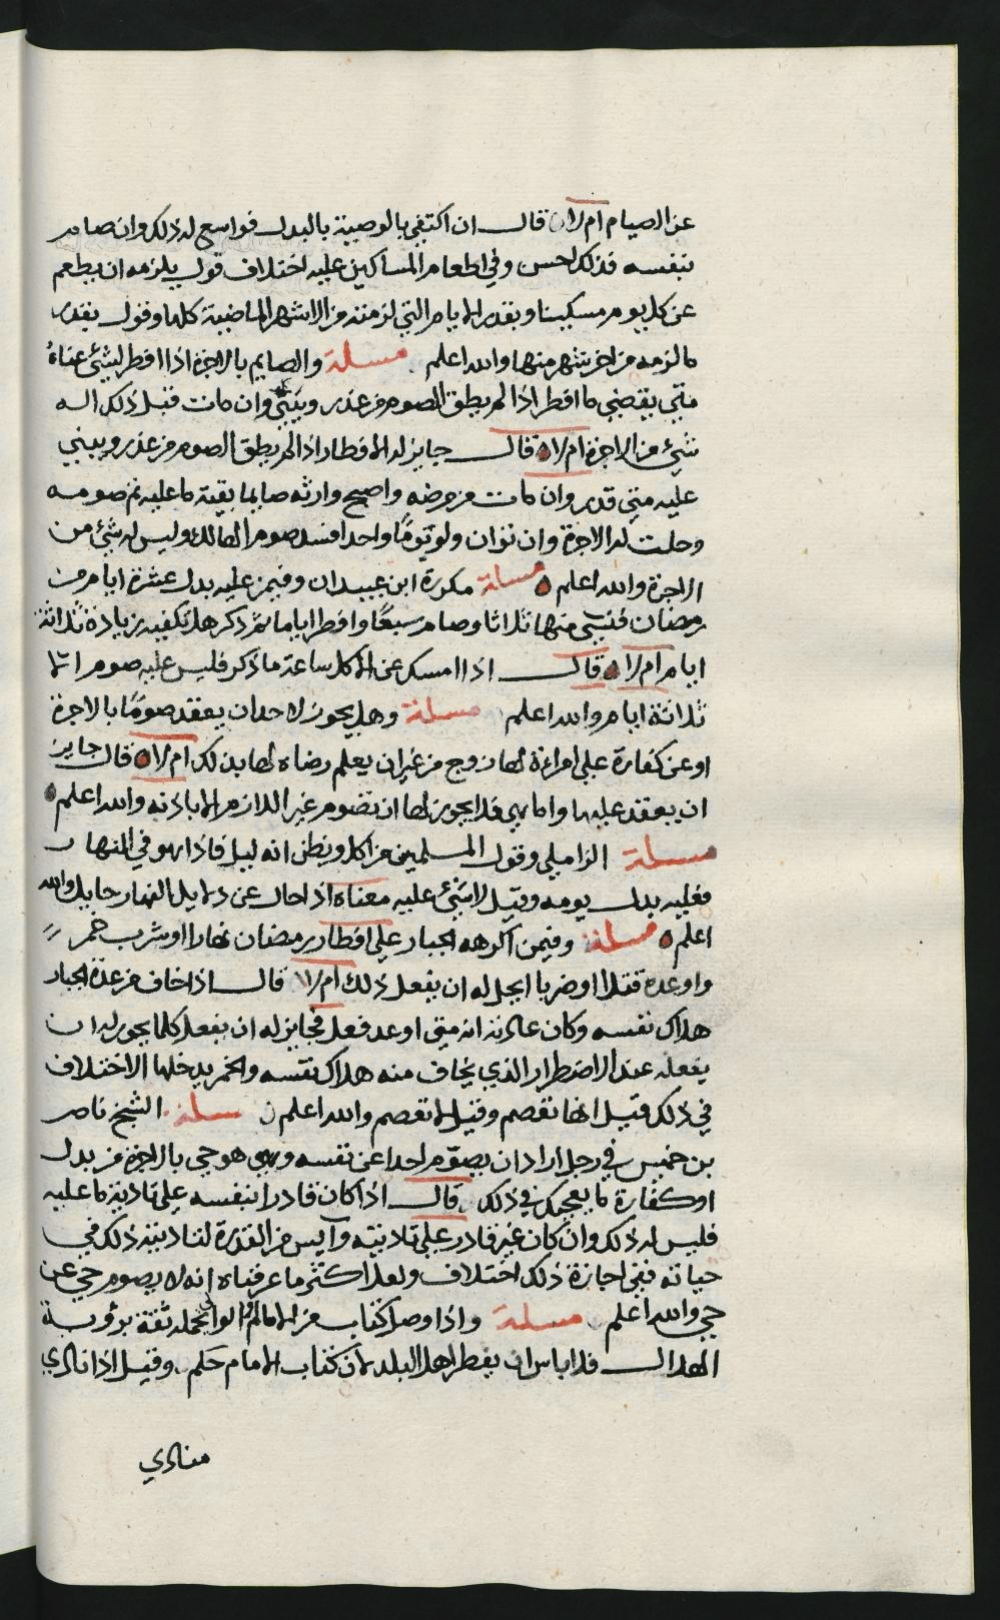 عن الصيام ام لا قال ان اكتفي بالوصية بالبدل فواسع له ذلك وان صام
بنفسه فذلك احسن وفي اطعام المساكين عليه اختلاف قول يلزمه ان يطعم
عن كل يوم مسكينا وبقدر الايام التي لزمته من الاشهر الماضية كلها وقول بقدر
ما لزمه من اخر شهر منها والله اعلم مسلة والصايم بالاجرة اذا افطر لشئ عناهُ
متي يقضي ما افطر اذا لم يطق الصوم من عذر ويبني وان مات قبل ذلك اله
شئ من الاجرة ام لا قال جايز له الافطار اذا لم يطق الصوم من عذر ويبني
عليه متي قدر وان مات من مرضه واصبح وارثه صايما بقية ما عليه تم صومه
وحلت له الاجرة وان توان ولو يومًا واحدا فسد صوم الهالك وليس له شئ من
الاجرة والله اعلم مسلة مكررة ابن عبيدان وفيمن عليه بدل عشرة ايام من
رمضان فنسي منها ثلاثا وصام سبعًا وافطر اياما ثم ذكر هل تكفيه زيادة ثلاثة
ايام ام لا قال اذا امسك عن الاكل ساعة ما ذكر فليس عليه صوم الا
ثلاثة ايام والله اعلم مسلة وهل يجوز لاحد ان يعقد صومًا بالاجرة
او عن كفارة علي امراءة لها زوج من غير ان يعلم رضاه لها بذلك ام لا قال جايز
ان يعقد عليها واما هي فلا يجوز لها ان تصوم غير اللازم الا باذنه والله اعلم
مسلة الزاملي وقول المسلمين من اكل ويظن انه ليل فاذا هو في النهار
فعليه بدل يومه وقيل لا شئ عليه معناه اذ احال عن دلايل النهار حايل والله
اعلم مسلة وفيمن اكرهه الجبار علي افطار رمضان نهارا او شرب خمر
واوعده قتلا او ضربا ايحل له ان يفعل ذلك ام لا قال اذا خاف من عدة الجبار
هلاك نفسه وكان عادته انه متي اوعد فعل فجايز له ان يفعل كلما يجوز له ان
يفعله عند الاضطرار الذي يخاف منه هلاك نفسه والخمر يدخلها الاختلاف
في ذلك قيل انها تعصم وقيل لا تعصم والله اعلم مسلة الشيخ ناصر
بن خميس في رجل اراد ان يصوّم احدا عن نفسه وهو حي بالاجرة من بدل
او كفارة ما يعجبك في ذلك قال اذا كان قادرا بنفسه علي تادية ما عليه
فليس له ذلك وان كان غير قادر علي تاديته وآيس من القدرة لتاديته ذلك في
حياته ففي اجازة ذلك اختلاف ولعل اكثر ما عرفناه انه لا يصوم حي عن
حي والله اعلم مسلة واذا وصل كتاب من الامام او الوالي بحمله ثقة برؤية
الهلال فلا باس ان يفطر اهل البلد لان كتاب الامام حكم وقيل اذا نادي
منادي